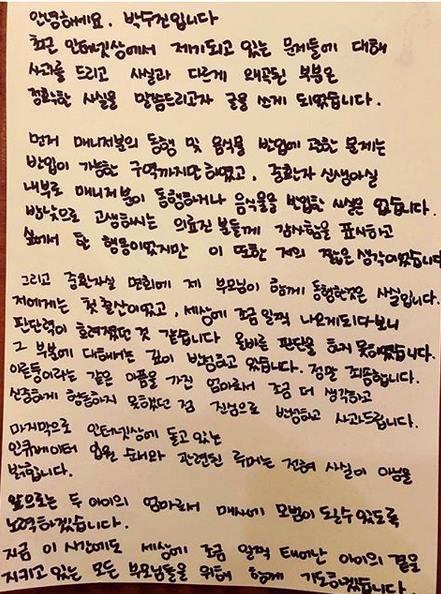 안녕하세요. 박수진입니다
최근 인터넷상에서 제기되고 있는 문제들에 대해
사과를 드리고 사실과 다르게 왜곡된 부분은
정확한 사실을 말씀드리고자 글을 쓰게 되었습니다.
먼저 매니저분의 동행 및 음식물 반입에 관한 문제는
반입이 가능한 구역까지만하였고, 중환자 신생아실
내부로 매니저분이 동행하거나 음식물을 반입한 사실은 없습니다.
밤낮으로 고생하시는 의료진 분들께 감사함을 표시하고
싶어서 한 행동이었지만 이 또한 저의 짧은 생각이었습니다
그리고 중환자실 면회에 제 부모님이 함께 동행한것은 사실입니다.
저에게는 첫 출산이었고, 세상에 조금 일찍 나오게되다보니
판단력이 흐려졌던 것 같습니다 올바른 판단을 하지 못하였습니다.
그 부분에 대해서는 깊이 반성하고 있습니다. 정말 죄송합니다.
이른둥이라는 같은 아픔을 가진 엄마로서 조금 더 생각하고
신중하게 행동하지 못했던 점 진심으로 반성하고 사과드립니다.
마지막으로 인터넷상에 돌고 있는
인큐베이터 입원 순서와 관련된 루머는 전혀 사실이 아님을
밝힙니다.
앞으로는 두 아이의 엄마로서 매사에 모범이 되실수 있도록
노력하겠습니다.
지금 이 시간에도 세상에 조금 일찍 태어난 아이의 곁을
지키고 있는 모든 부모님들을 위해 함께 기도하겠습니다.